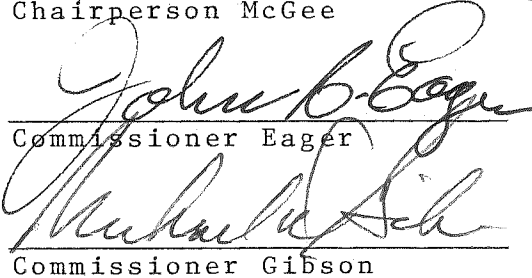 Chairperson McGee
John C. Eager
Commissioner Eager
Commissioner Gibson